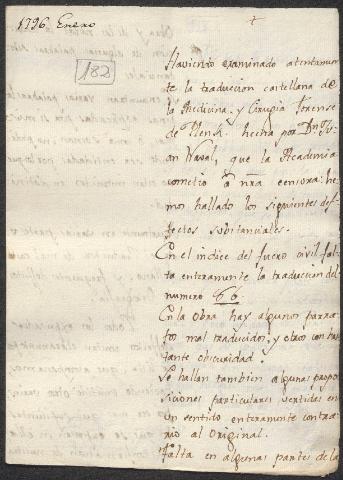 1796 Enero
182
Haviendo examinado atentamen
te la traducion castellana de
la Medicina, y Cirugia forense
de Plenk hecha por Dn Ju
an Naval, que la Academia
cometio a nra censura: he
mos hallado los siguientes de
fectos substanciales.
En el indice del fuero civil fal
ta enteramente la traducion del
numero 66.
En la Obra hay algunos parra
fos mal traducidos, y otros con bas
tante obscuridad.
Se hallan tambien algunas propo
siciones particulares vertidas en
un sentido enteramente contra
rio al Original.
Falta en algunas partes de la